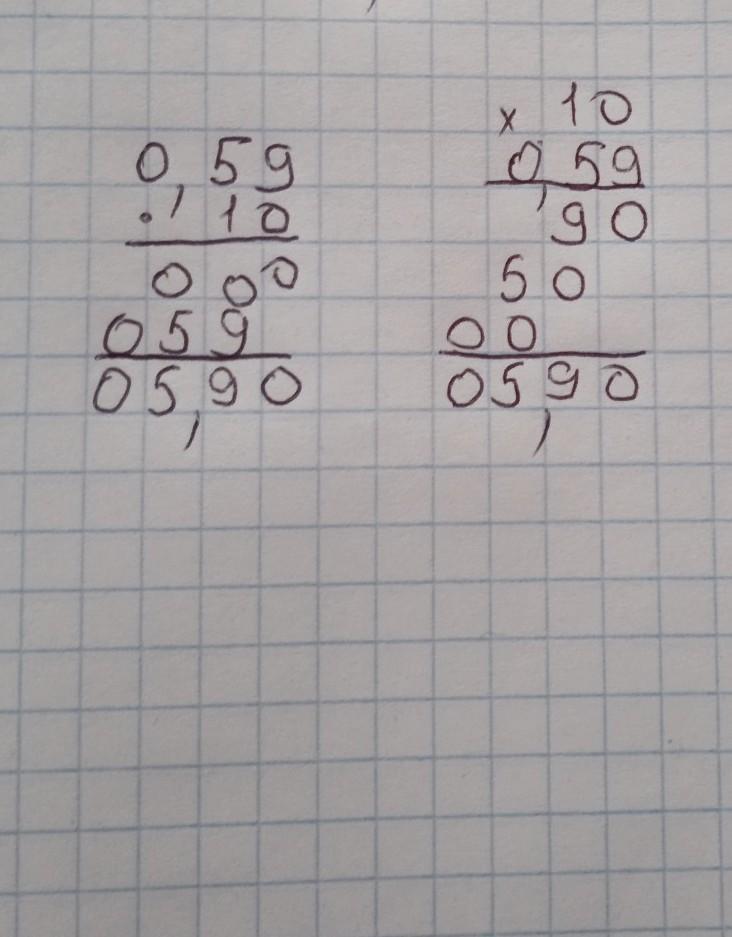 0,59
· 10
000
059
05,90
x 10
0,59
90
50
00
05,90